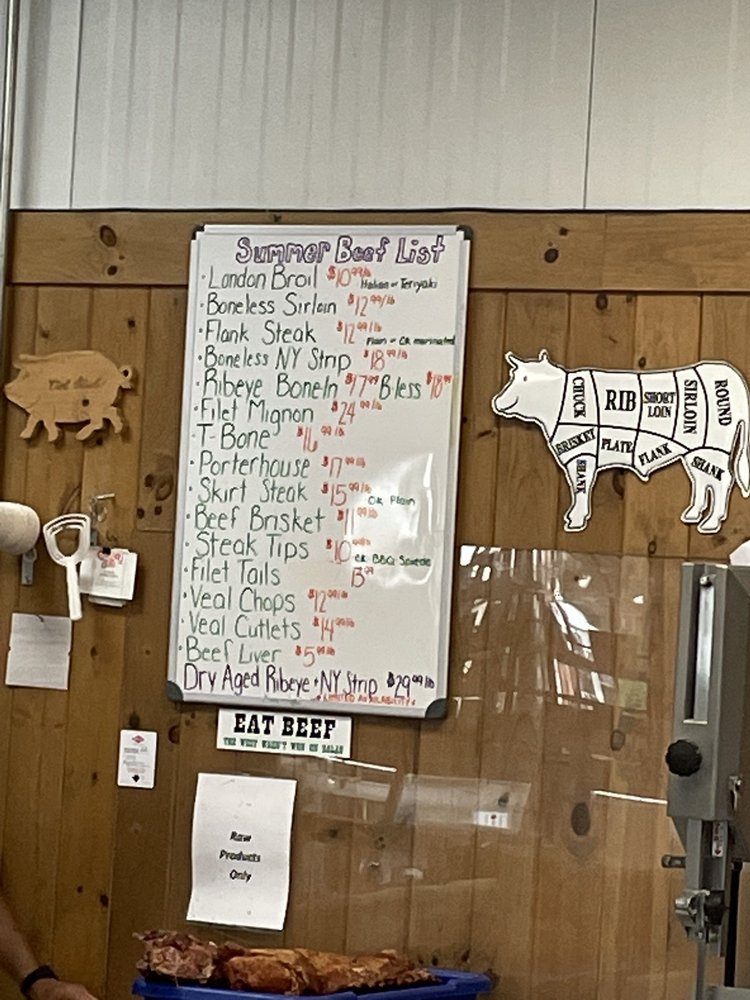 Summer Beef List
· London Broil $10.99/lb Italian or Teriyaki
· Boneless Sirloin $12.99/lb
· Flank Steak $12.99/lb Plain or CR marinated
· Boneless NY Strip $18.99/lb
· Ribeye BoneIn $17.99 Bless $18.99
· Filet Mignon $24.99/lb
· T-Bone $16.99/lb
· Porterhouse $17.99/lb
· Skirt Steak $15.99/lb CR Plain
· Beef Brisket $11.99/lb
· Steak Tips $10.99/lb CR BBQ
· Filet Tails 13.99
· Veal Chops $12.99/lb
· Veal Cutlets $14.99/lb
· Beef Liver $5.99/lb
Dry Aged Ribeye + NY Strip $29.99/lb
*LIMITED AVAILABILITY*
CHUCK
RIB
SHORT
LOIN
SIRLOIN
ROUND
BRISKET
PLATE
FLANK
SHANK
SHANK
EAT BEEF
THE WEST WASN'T WON ON SALAD
Raw
Products
Only